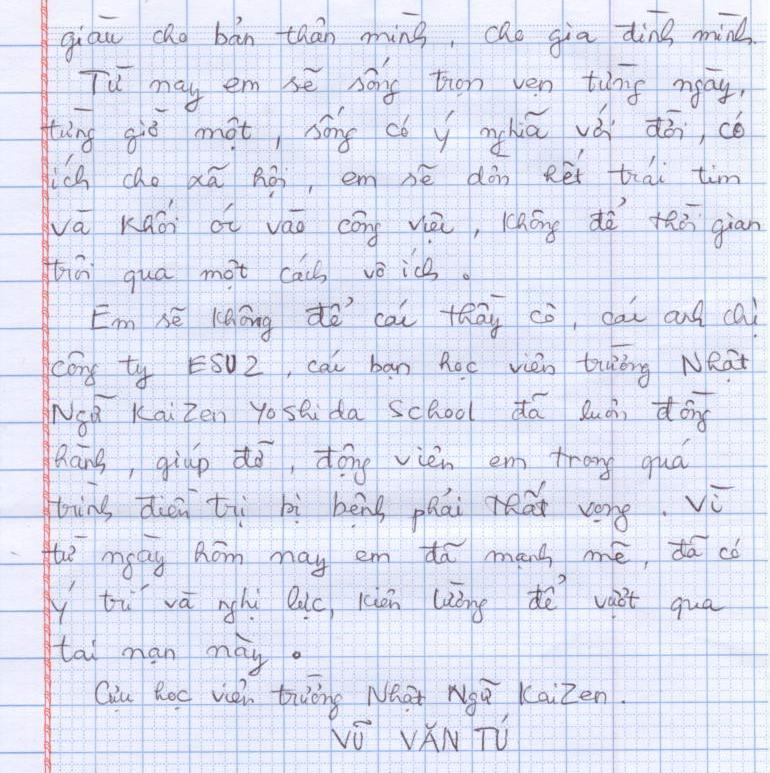 giàu cho bản thân mình, cho gia đình mình.
Từ nay em sẽ sống trọn vẹn từng ngày,
từng giờ một, sống có ý nghĩa với đời, có
ích cho xã hội, em sẽ dồn hết trái tim
và khối óc vào công việc, không để thời gian
trôi qua một cách vô ích.
Em sẽ không để các thầy cô, các anh chị
công ty ESU2, các bạn học viên trường Nhật
Ngữ KaiZen Yoshida School đã luôn đồng
hành, giúp đỡ, động viên em trong quá
trình điền trị bị bệnh phải thất vọng. Vì
từ ngày hôm nay em đã mạnh mẽ, đã có
ý trí và nghị lực, kiên cường để vượt qua
tai nạn này.
Cựu học viên trường Nhật Ngữ KaiZen.
VŨ VĂN TÚ